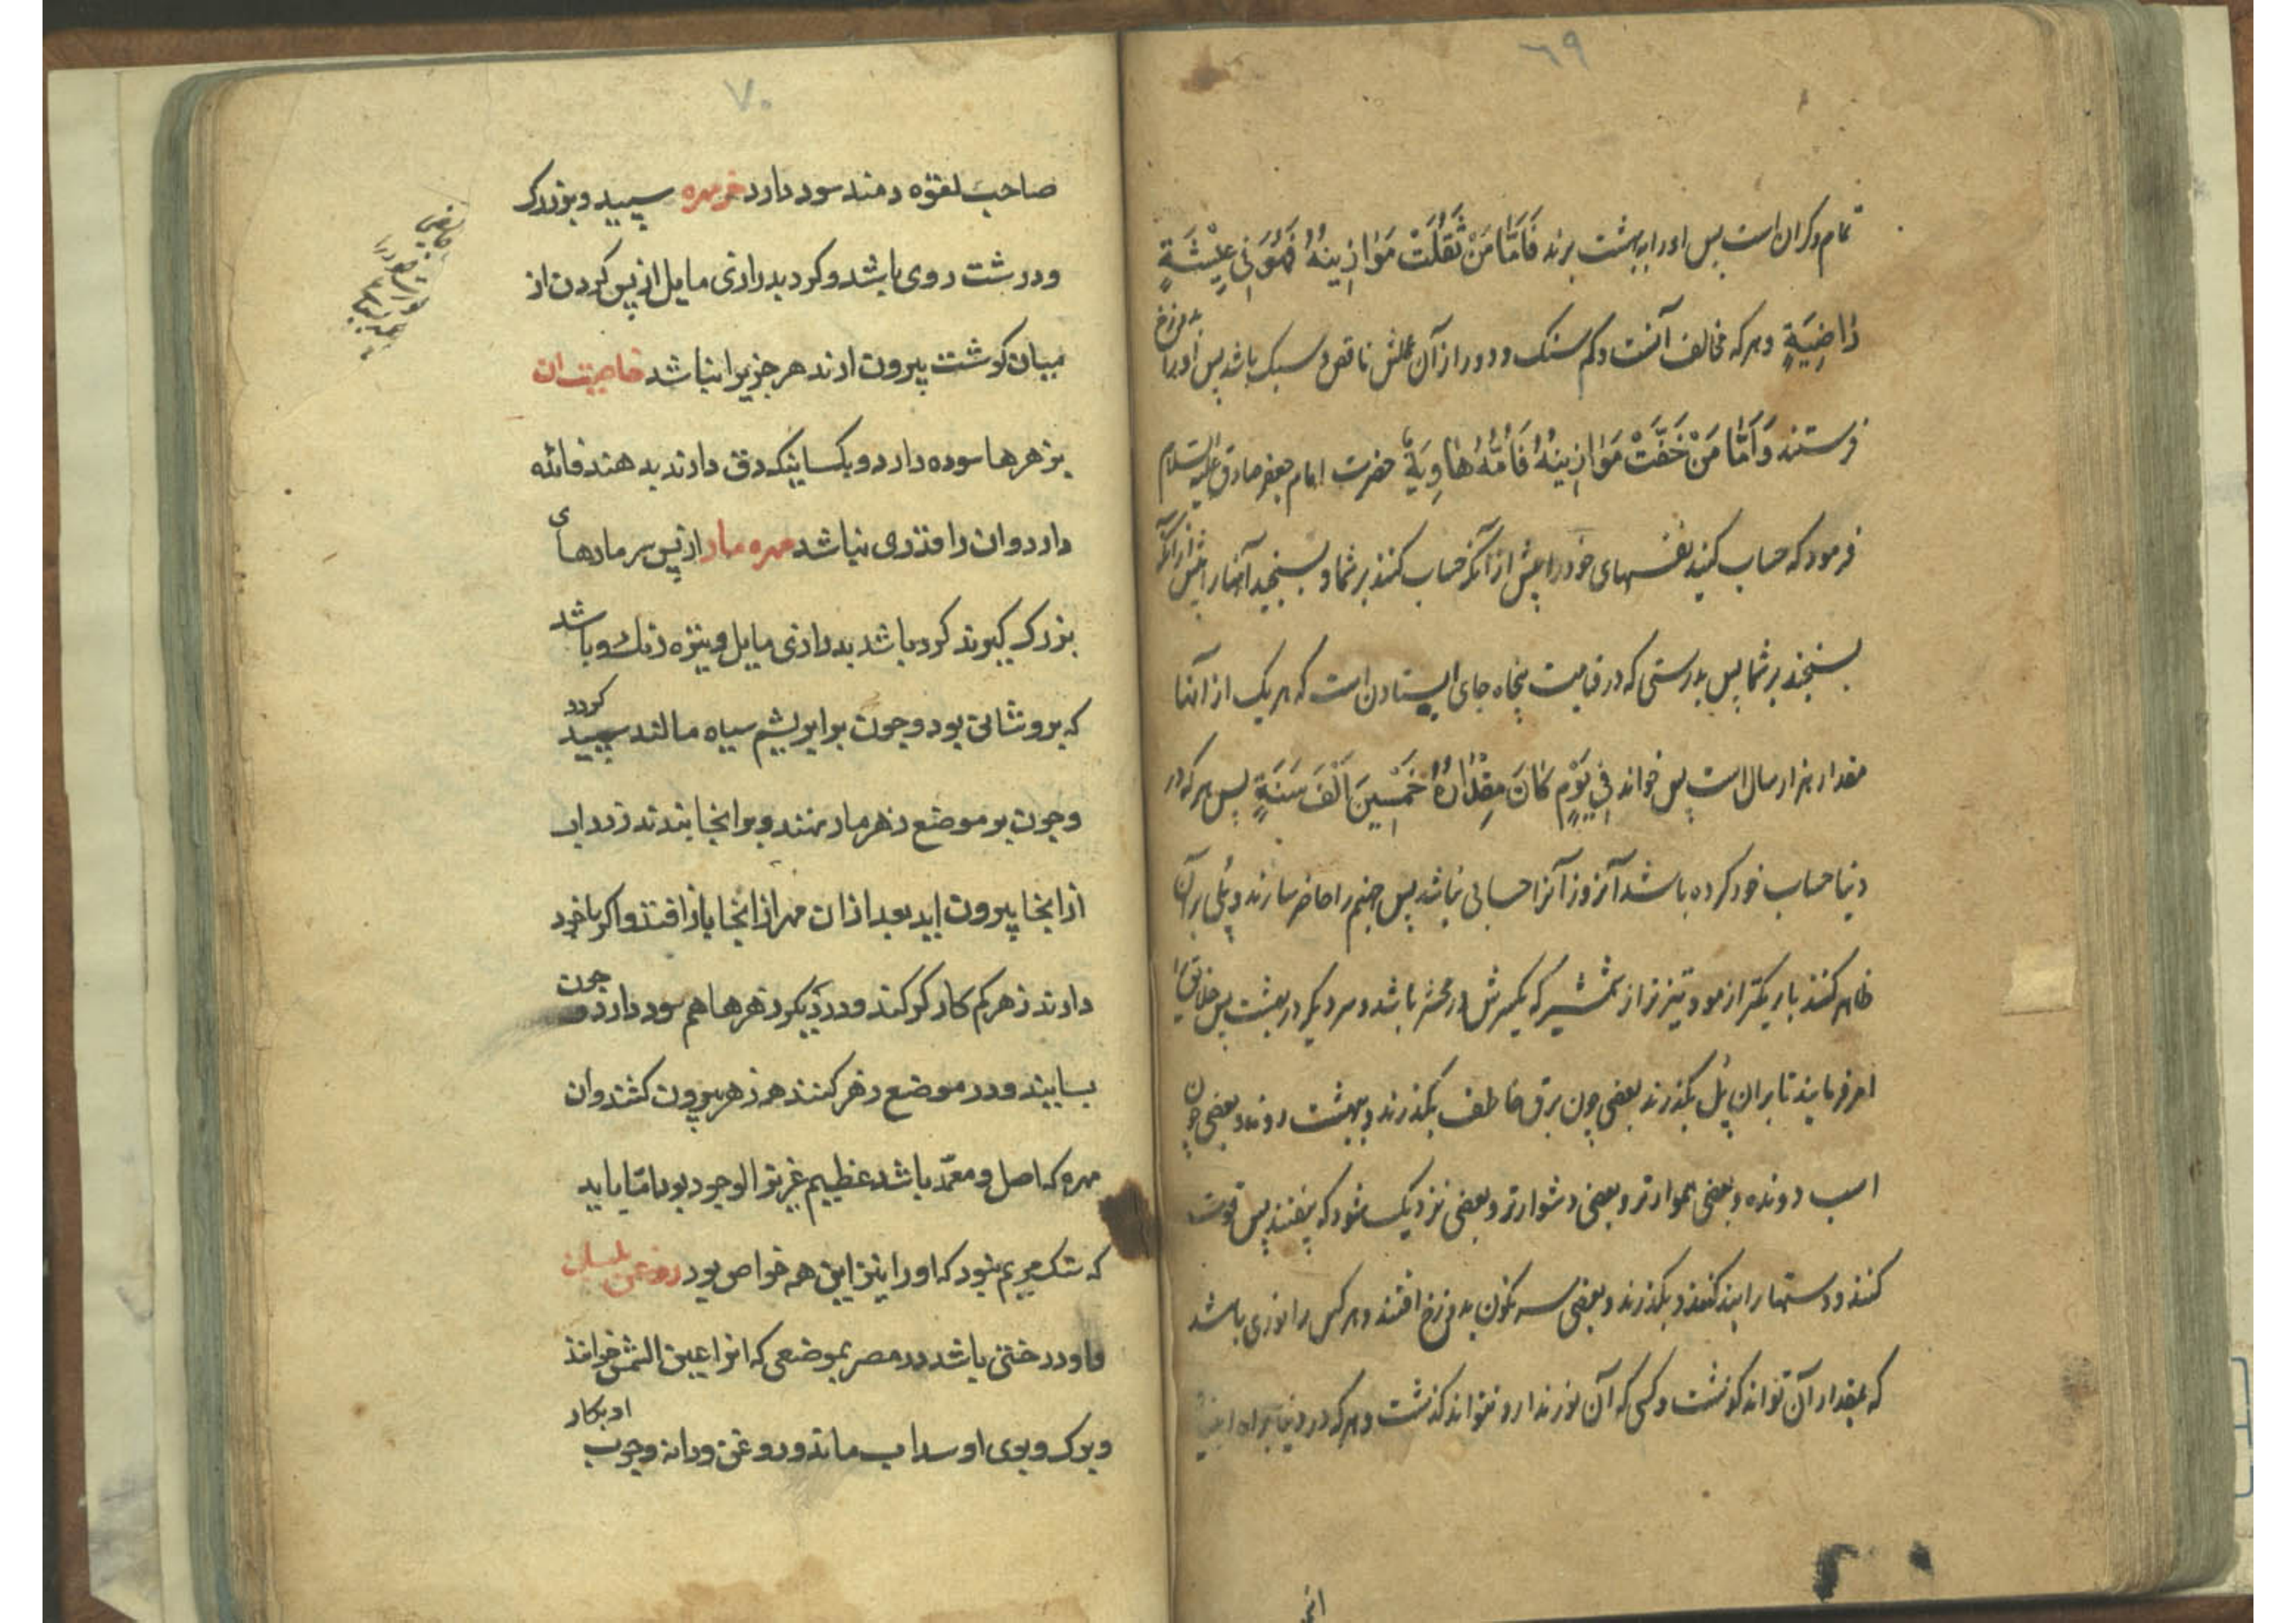 ٦٩
تمام وکران است پس اورا به بهشت برند فَاَمَّا مَنْ ثَقُلَتْ مَوٰازِینُهُ فَهُوَ فِی عِیْشَةٍ
رٰاضِیَةٍ وهرکه مخالف آنست وکم سنک ودور از آن عملش ناقص وسبک باشد پس اورا بدوزخ
فرستند وَاَمَّا مَنْ خَفَّتْ مَوٰازِینُهُ فَاُمُّهُ هٰاوِیَةٌ حضرت امام جعفر صادق علیه السلام
فرمود که حساب کنید نفسهای خودرا پیش از آنکه حساب کنند بر شما وبسنجید آنهارا پیش از آنکه
بسنجند بر شما پس بدرستی که در قیامت پنجاه جای ایستادن است که هریک از آنها
مقدار هزار سال است پس خواند فِی یَوْمٍ کٰانَ مِقْدٰارُهُ خَمْسِینَ اَلْفَ سَنَةٍ پس هرکه در
دنیا حساب خود کرده باشد آنروز آنرا حسابی نباشد پس جهنم را حاضر سازند وپلی بر آن
ظاهر کنند باریکتر از مو وتیزتر از شمشیر که یکسرش در محشر باشد وسر دیکر در بهشت پس خلایق را
امر فرمایند تا بران پل بکذرند بعضی چون برق خاطف بکذرند وببهشت روند وبعضی چون
اسب دونده وبعضی هموارتر وبعضی دشوارتر وبعضی نزدیک شود که بیفتند پس قوت
کنند ودستهارا بند کنند وبکذرند وبعضی سرنکون بدوزخ افتند وهرکس را نوری باشد
که بمقدار آن تواند کذشت وکسی که آن نور ندارد نتواند کذشت وهرکه در دنیا براه
٧٠
صاحب لقوه دمند سود دارد خرمهره سپید وبزرک
ودرشت روی باشد وکرد بدرازی مایل از پس کردن از
میان کوشت بیرون ارند هر جز یرا نباشد خاصیت ان
بزهرها سوده دارد وبکسانیکه دق دارند بدهند فائده
دارد وان را قدری نباشد مهره مار از پس سر مارهای
بزرک کیرند کرد باشد بدرازی مایل وتیزه رنک وباشد
که بروشانی بود وچون بر ابریشم سیاه مالند سپید کردد
وچون بر موضع زهر مار نهند وبرانجا بندند زرداب
از انجا بیرون اید بعد ازان مهر از انجا باز افتد واکر باخود
دارند زهر کم کار کر کند ودر دیکر زهرها هم سود دارد وچون
بسایند ودر موضع زهر کنند هم زهر بیرون کشد وان
مهره که اصل ومعتمد باشد عظیم عزیز الوجود بود امتا باید
که سنک مریم بود که اورا نیز این همه خواص بود روغن بلسان
واو درختی باشد در مصر بموضعی که انرا عین الشمس خوانند
وبرک وبوی او سداب ماند وروغن ودانه وچوب او بکار